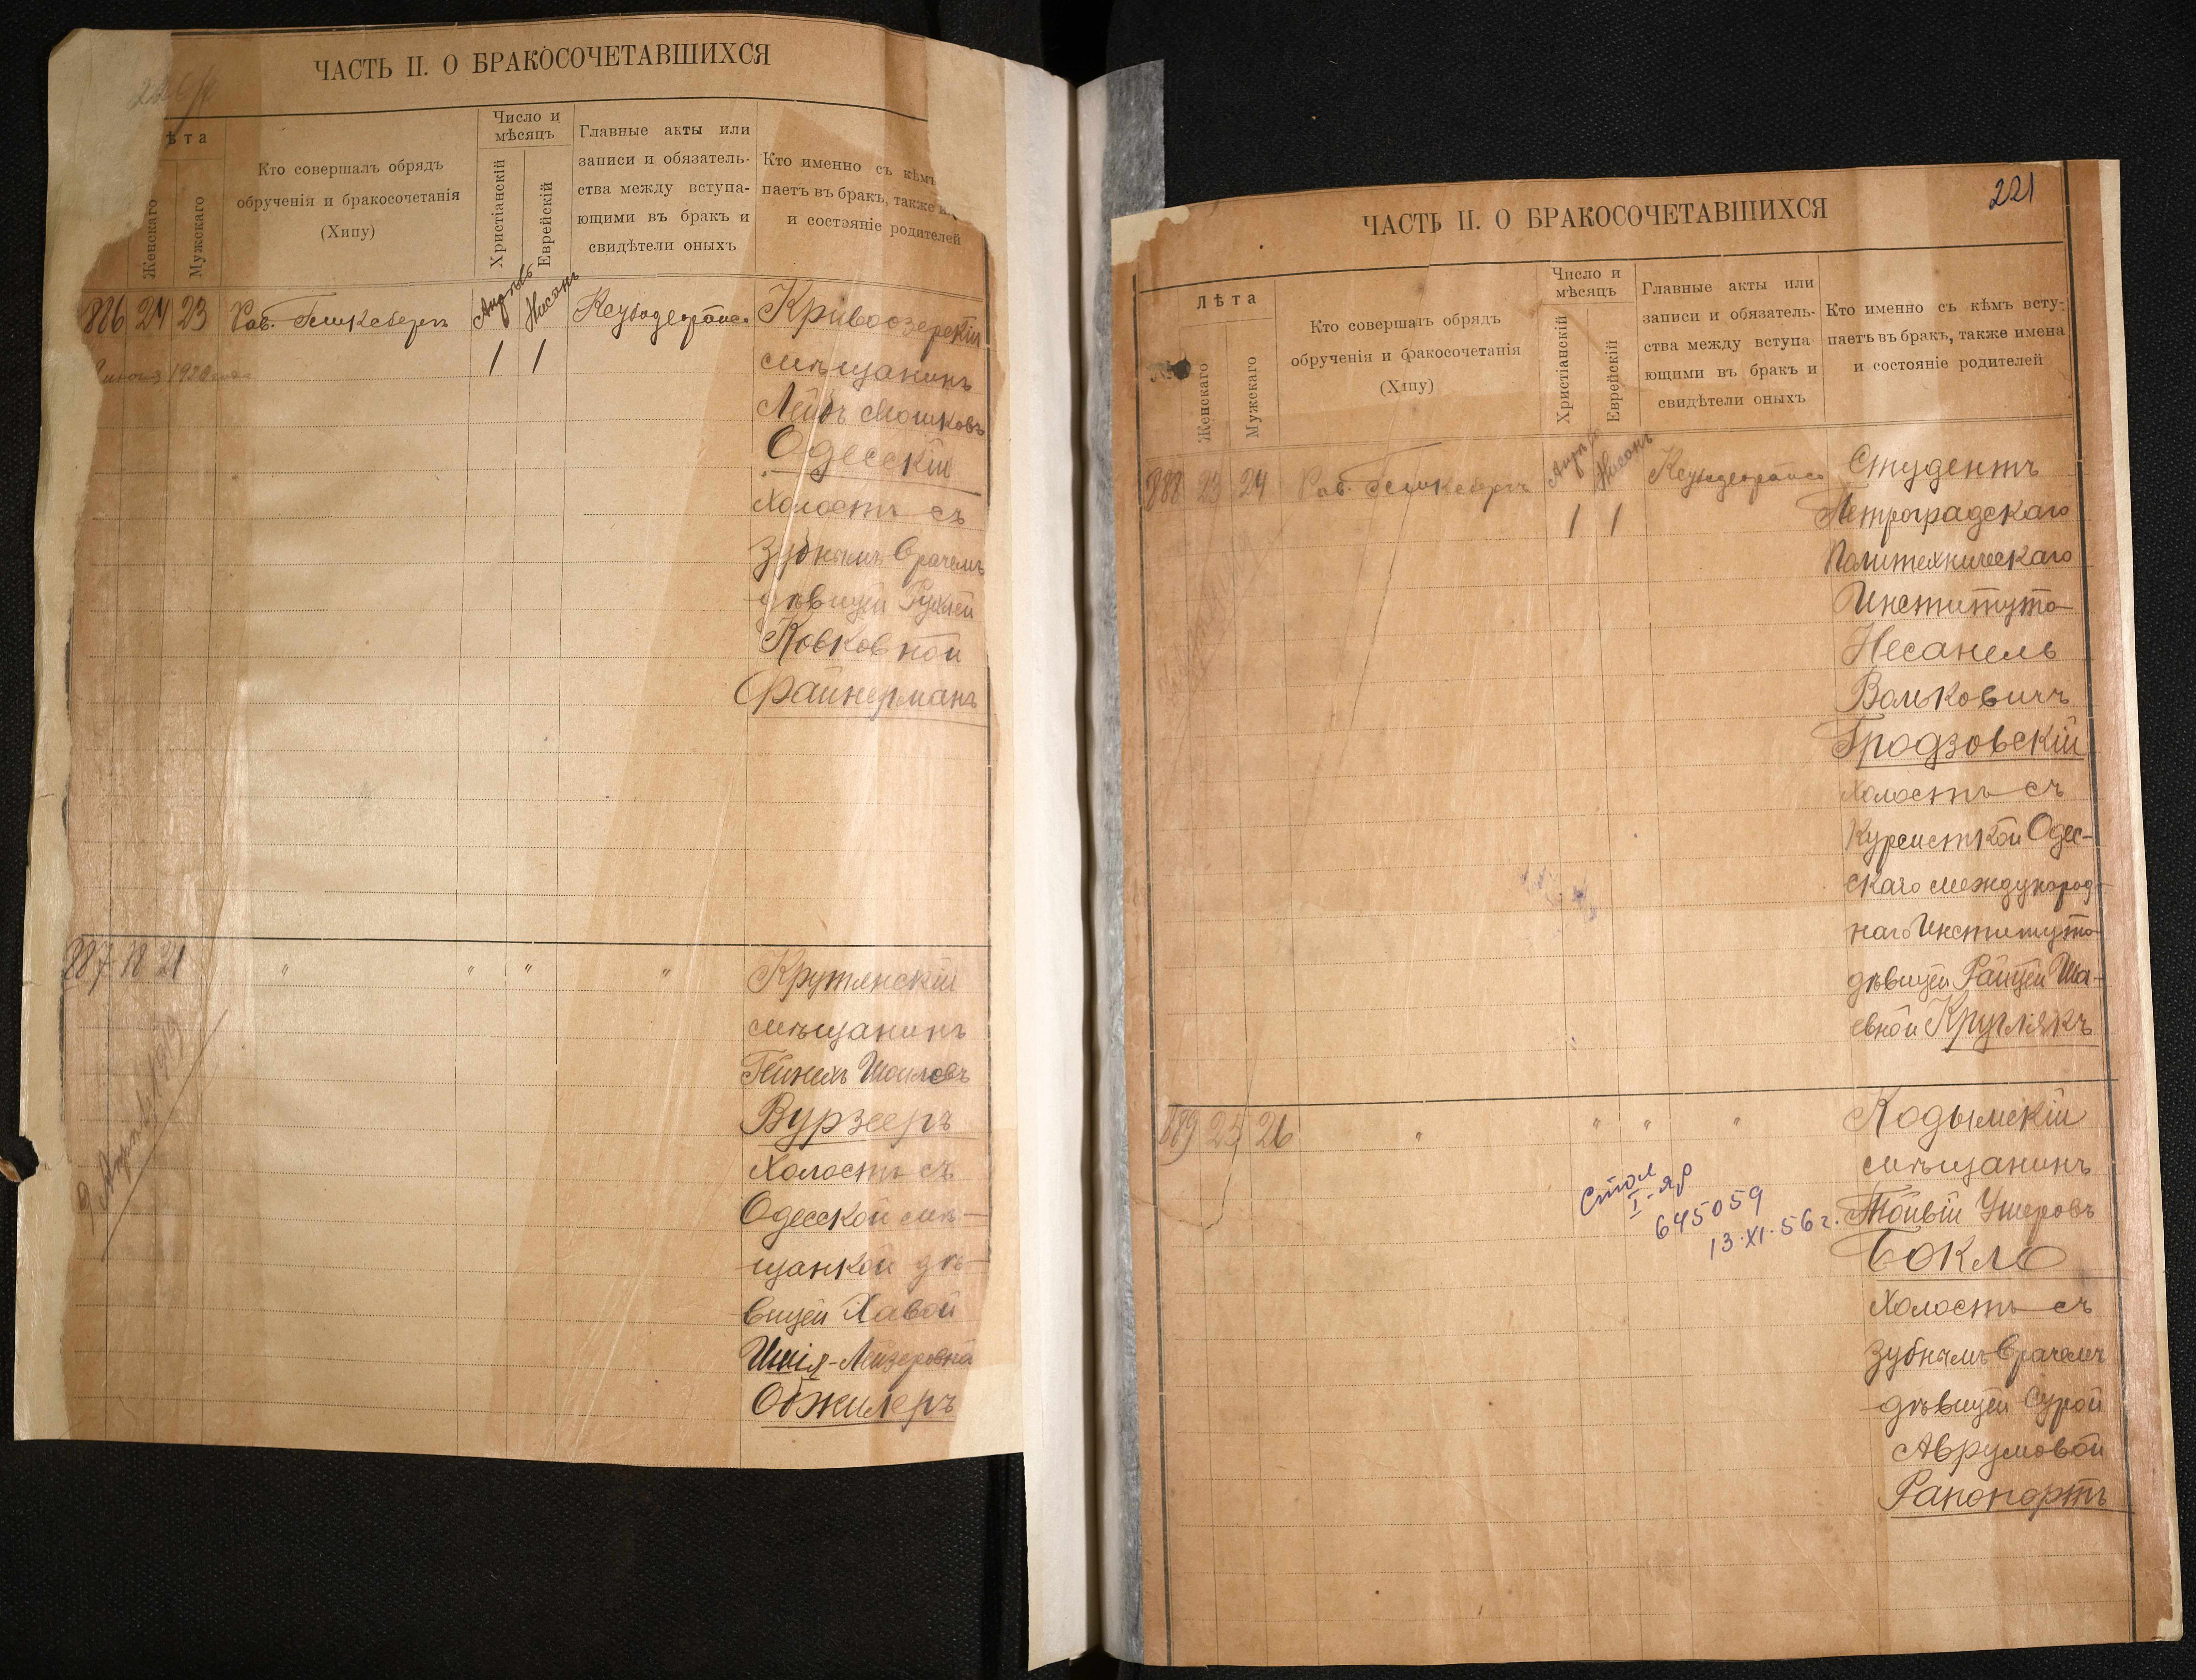 ЧАСТЬ II. О БРАКОСОЧЕТАВШИХСЯ
ѣта
Женскаго
Мужскаго
Кто совершалъ обрядъ
обрученія и бракосочетанія
(Хипу)
Число и
мѣсяцъ
Христіанскій
Еврейскій
Главные акты или
записи и обязатель-
ства между вступа-
ющими въ бракъ и
свидѣтели оныхъ
Кто именно съ кѣмъ
паетъ въ бракъ, также
и состояніе родителей
886 24 23 Рав.
Апрѣль
Нисанъ
1 1
Кривоозерскій
мѣщанинъ
Лейбъ Мошковъ
Одесскій
Холостъ съ
зубнымъ врачемъ
дѣвицей Рухлей
Ковковной
Файнерманъ
887 18 21 " " " "
Крутянскій
мѣщанинъ
Вурзееръ
Холостъ съ
Одесской мѣ-
щанкой дѣ-
вицей Хавой
Обжилеръ
221
ЧАСТЬ II. О БРАКОСОЧЕТАВШИХСЯ
Лѣта
Женскаго
Мужскаго
Кто совершалъ обрядъ
обрученія и бракосочетанія
(Хипу)
Число и
мѣсяцъ
Христіанскій
Еврейскій
Главные акты или
записи и обязатель-
ства между вступа
ющими въ бракъ и
свидѣтели оныхъ
Кто именно съ кѣмъ всту-
паетъ въ бракъ, также имена
и состояніе родителей
888 23 24 Рав.
Нисанъ
1 1
Студентъ
Петроградскаго
Политехническаго
Института
Несанель
Вольковичъ
Гродзовскій
Холостъ съ
Курсисткой Одес-
скаго международ-
наго Института
дѣвицей Райцей Ша-
евной Круглякъ
889 25 26 " " " "
Кодымскій
мѣщанинъ
Тойвій Ушеровъ
Бокло
Холостъ съ
зубнымъ врачемъ
дѣвицей Сурой
Аврумовой
Рапопортъ
645059
13.XI.56 г.